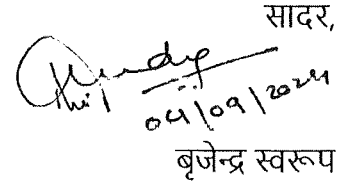 सादर,
04/09/2024
बृजेन्द्र स्वरूप